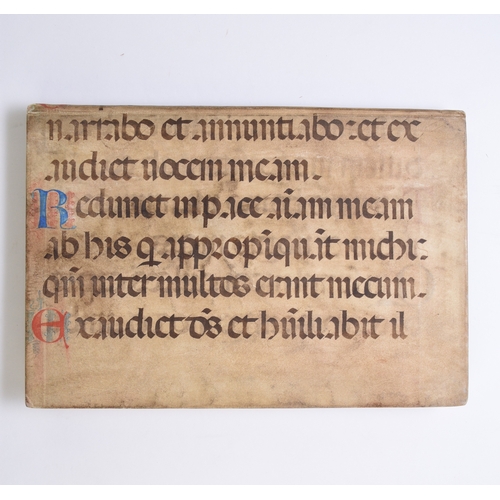 narrabo et annuntiabo: et ex
audiet uocem meam.
Redimet in pace aı̄am meam
ab his q̄ appropīquāt michi:
qm̄ inter multos erant mecum.
Exaudiet dō̄s et hūiliabit il